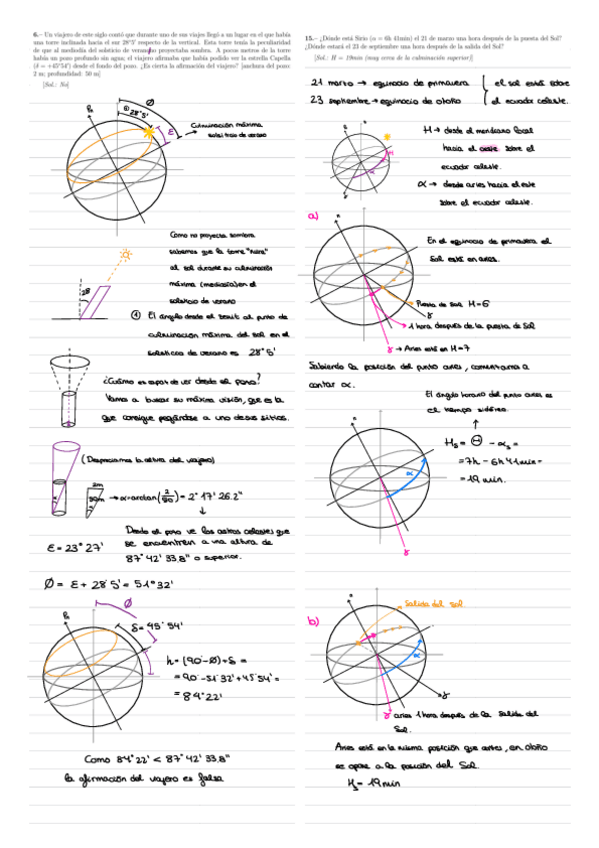 6.– Un viajero de este siglo contó que durante uno de sus viajes llegó a un lugar en el que había
una torre inclinada hacia el sur 28°5' respecto de la vertical. Esta torre tenía la peculiaridad
de que al mediodía del solsticio de verano no proyectaba sombra. A pocos metros de la torre
había un pozo profundo sin agua; el viajero afirmaba que había podido ver la estrella Capella
(δ = +45°54') desde el fondo del pozo. ¿Es cierta la afirmación del viajero? [anchura del pozo:
2 m; profundidad: 50 m]
[Sol.: No]
Ø
① 28°5'
ε
Culminación máxima
solsticio de verano
Como no proyecta sombra
sabemos que la torre "mira"
al sol durante su culminación
máxima (mediodía) en el
solsticio de verano
28
① El ángulo desde el zenit al punto de
culminación máxima del sol en el
solsticio de verano es 28°5'
¿Cuánto es capaz de ver desde el pozo?
Vamos a buscar su máxima visión, que es la
que consigue pegándose a uno de sus sitios.
(Despreciamos la altura del viajero)
2m
50m → α=arctan(2/50) = 2° 17' 26.2"
↓
Desde el pozo ve los astros celestes que
se encuentren a una altura de
87° 42' 33,8" o superior.
ε = 23° 27'
Ø = ε + 28°5' = 51° 32'
Ø
δ = 45° 54'
h = (90-Ø)+δ =
= 90 - 51°32' + 45°54' =
= 84° 22'
Como 84° 22' < 87° 42' 33,8"
la afirmación del viajero es falsa
15.– ¿Dónde está Sirio (α = 6h 41min) el 21 de marzo una hora después de la puesta del Sol?
¿Dónde estará el 23 de septiembre una hora después de la salida del Sol?
[Sol.: H = 19min (muy cerca de la culminación superior)]
21 marzo → equinocio de primavera
23 septiembre → equinocio de otoño
el sol está sobre
el ecuador celeste.
H → desde el meridiano local
hacia el oeste sobre el
ecuador celeste.
α → desde aries hacia el este
sobre el ecuador celeste.
H
α
a)
En el equinocio de primavera el
Sol está en aries.
Puesta de Sol H=6
1 hora después de la puesta de Sol
γ → Aries está en H=7
Sabiendo la posición del punto aries, comenzamos a
contar α.
El ángulo horario del punto aries es
el tiempo sidéreo.
α
Hs = Θ - αs =
= 7h - 6h 41min =
= 19 min.
γ
b)
Salida del Sol.
α
γ
γ aries 1 hora después de la salida del
Sol.
Aries está en la misma posición que antes, en otoño
se opone a la posición del Sol.
Hs = 19 min